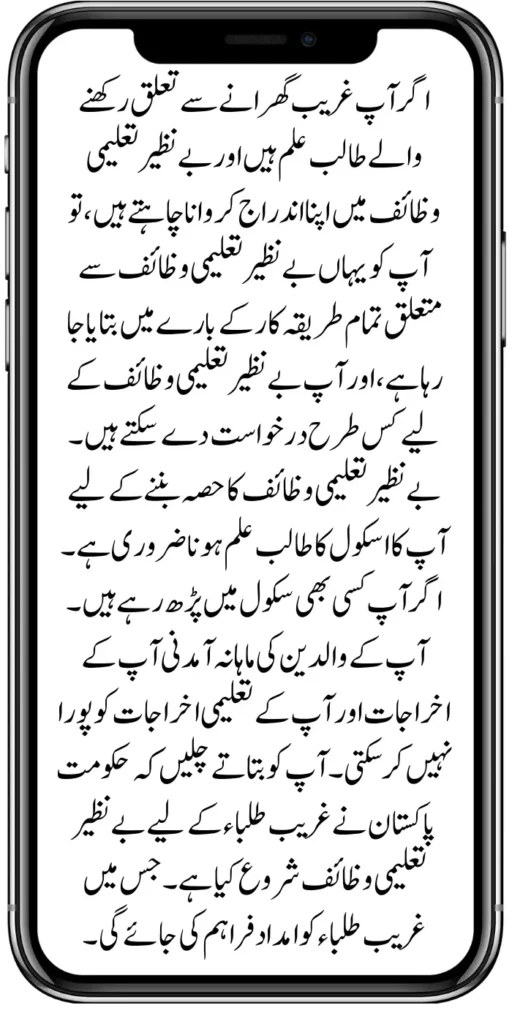 اگر آپ غریب گھرانے سے تعلق رکھنے
والے طالب علم ہیں اور بے نظیر تعلیمی
وظائف میں اپنا اندراج کروانا چاہتے ہیں، تو
آپ کو یہاں بے نظیر تعلیمی وظائف سے
متعلق تمام طریقہ کار کے بارے میں بتایا جا
رہا ہے، اور آپ بے نظیر تعلیمی وظائف کے
لیے کس طرح درخواست دے سکتے ہیں۔
بے نظیر تعلیمی وظائف کا حصہ بننے کے لیے
آپ کا اسکول کا طالب علم ہونا ضروری ہے۔
اگر آپ کسی بھی سکول میں پڑھ رہے ہیں۔
آپ کے والدین کی ماہانہ آمدنی آپ کے
اخراجات اور آپ کے تعلیمی اخراجات کو پورا
نہیں کر سکتی۔ آپ کو بتاتے چلیں کہ حکومت
پاکستان نے غریب طلباء کے لیے بے نظیر
تعلیمی وظائف شروع کیا ہے۔ جس میں
غریب طلباء کو امداد فراہم کی جائے گی۔